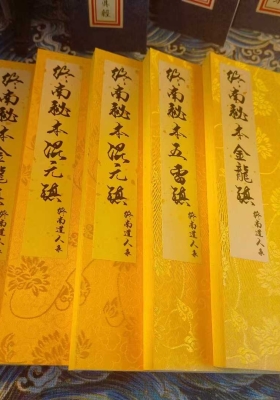 終南秘本金龍鎮
終南道人
終南秘本五雷鎮
終南道人
終南秘本混元鎮
終南道人
終南秘本混元鎮
終南道人
終南秘本金龍